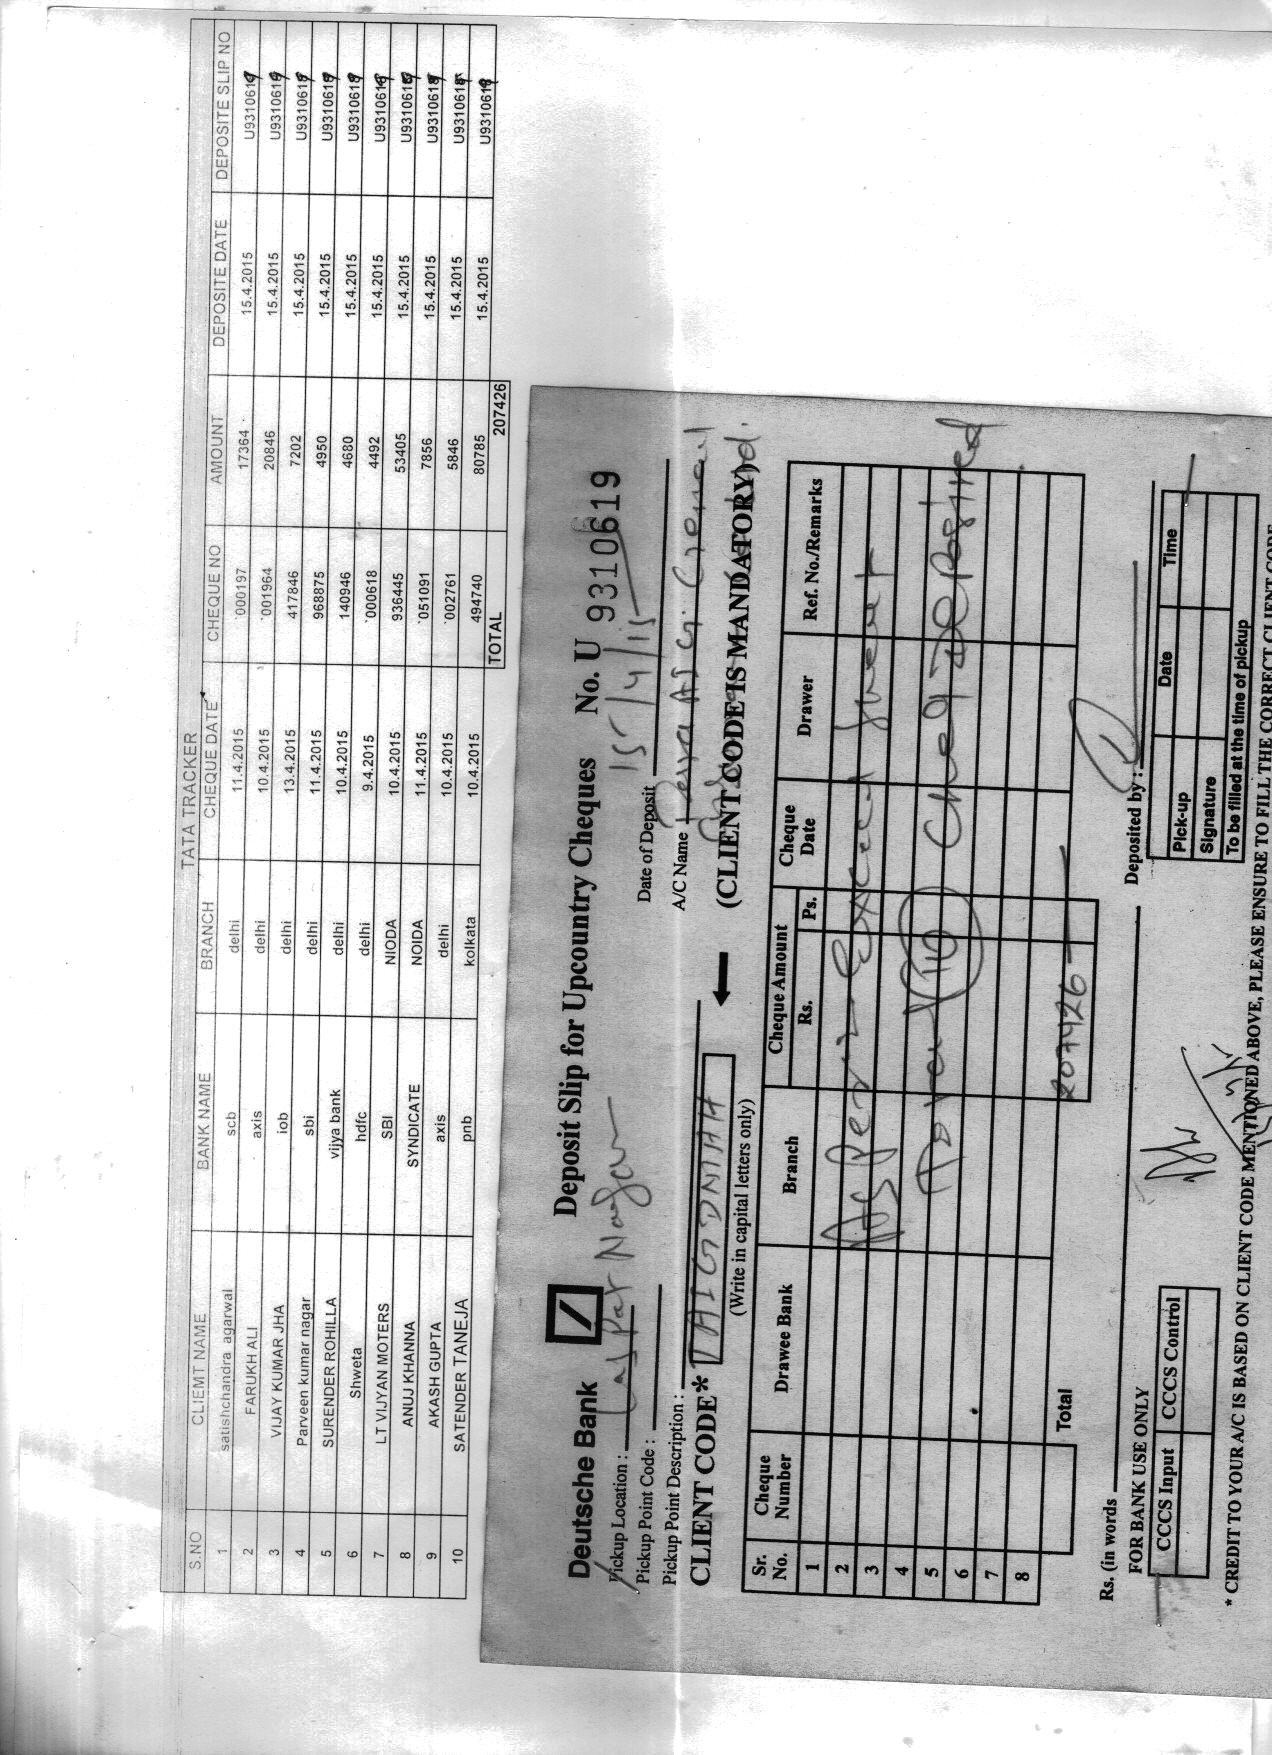 TATA TRACKER
S.NO CLIEMT NAME BANK NAME BRANCH CHEQUE DATE CHEQUE NO AMOUNT DEPOSITE DATE DEPOSITE SLIP NO
1 satishchandra agarwal scb delhi 11.4.2015 '000197 17364 15.4.2015 U9310619
2 FARUKH ALI axis delhi 10.4.2015 '001964 20846 15.4.2015 U9310619
3 VIJAY KUMAR JHA iob delhi 13.4.2015 417846 7202 15.4.2015 U9310619
4 Parveen kumar nagar sbi delhi 11.4.2015 968875 4950 15.4.2015 U9310619
5 SURENDER ROHILLA vijya bank delhi 10.4.2015 140946 4680 15.4.2015 U9310619
6 Shweta hdfc delhi 9.4.2015 '000618 4492 15.4.2015 U9310619
7 LT VIJYAN MOTERS SBI NIODA 10.4.2015 936445 53405 15.4.2015 U9310619
8 ANUJ KHANNA SYNDICATE NOIDA 11.4.2015 '051091 7856 15.4.2015 U9310619
9 AKASH GUPTA axis delhi 10.4.2015 '002761 5846 15.4.2015 U9310619
10 SATENDER TANEJA pnb kolkata 10.4.2015 494740 80785 15.4.2015 U9310619
TOTAL 207426
Deutsche Bank Deposit Slip for Upcountry Cheques No. U 9310619
Pickup Location : Lajpat Nagar Date of Deposit 15/4/15
Pickup Point Code :
Pickup Point Description : A/C Name Tata AIG General
CLIENT CODE* TAIGDNIAH (CLIENT CODE IS MANDATORY)
(Write in capital letters only)
Sr. No. Cheque Number Drawee Bank Branch Cheque Amount Rs. Ps. Cheque Date Drawer Ref. No./Remarks
1
2 As Per Excel Sheet
3
4
5 Total (10) Cheq Deposited
6
7
8
Total 207426
Rs. (in words Deposited by :
FOR BANK USE ONLY
CCCS Input CCCS Control
Date Time
Pick-up
Signature
To be filled at the time of pickup
* CREDIT TO YOUR A/C IS BASED ON CLIENT CODE MENTIONED ABOVE, PLEASE ENSURE TO FILL THE CORRECT CLIENT CODE